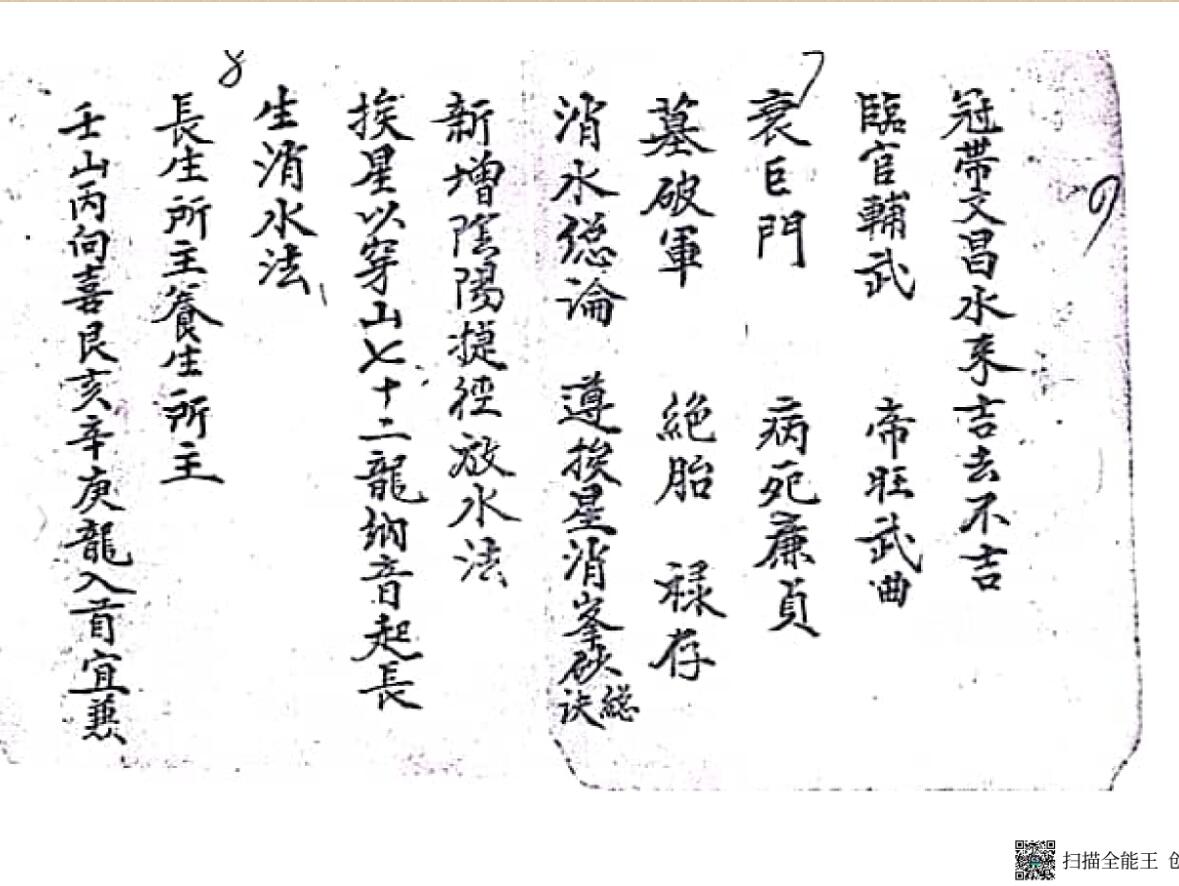 冠帶文昌水來吉去不吉
臨官輔武 帝旺武曲
衰巨門 病死廉貞
墓破軍 絶胎 禄存
7
消水総論 遵挨星消峯砂総訣
新增陰陽捷徑放水法
挨星以穿山七十二龍納音起長
生消水法
8
長生所主養生所主
壬山丙向喜艮亥辛庚龍入首宜兼
扫描全能王 创